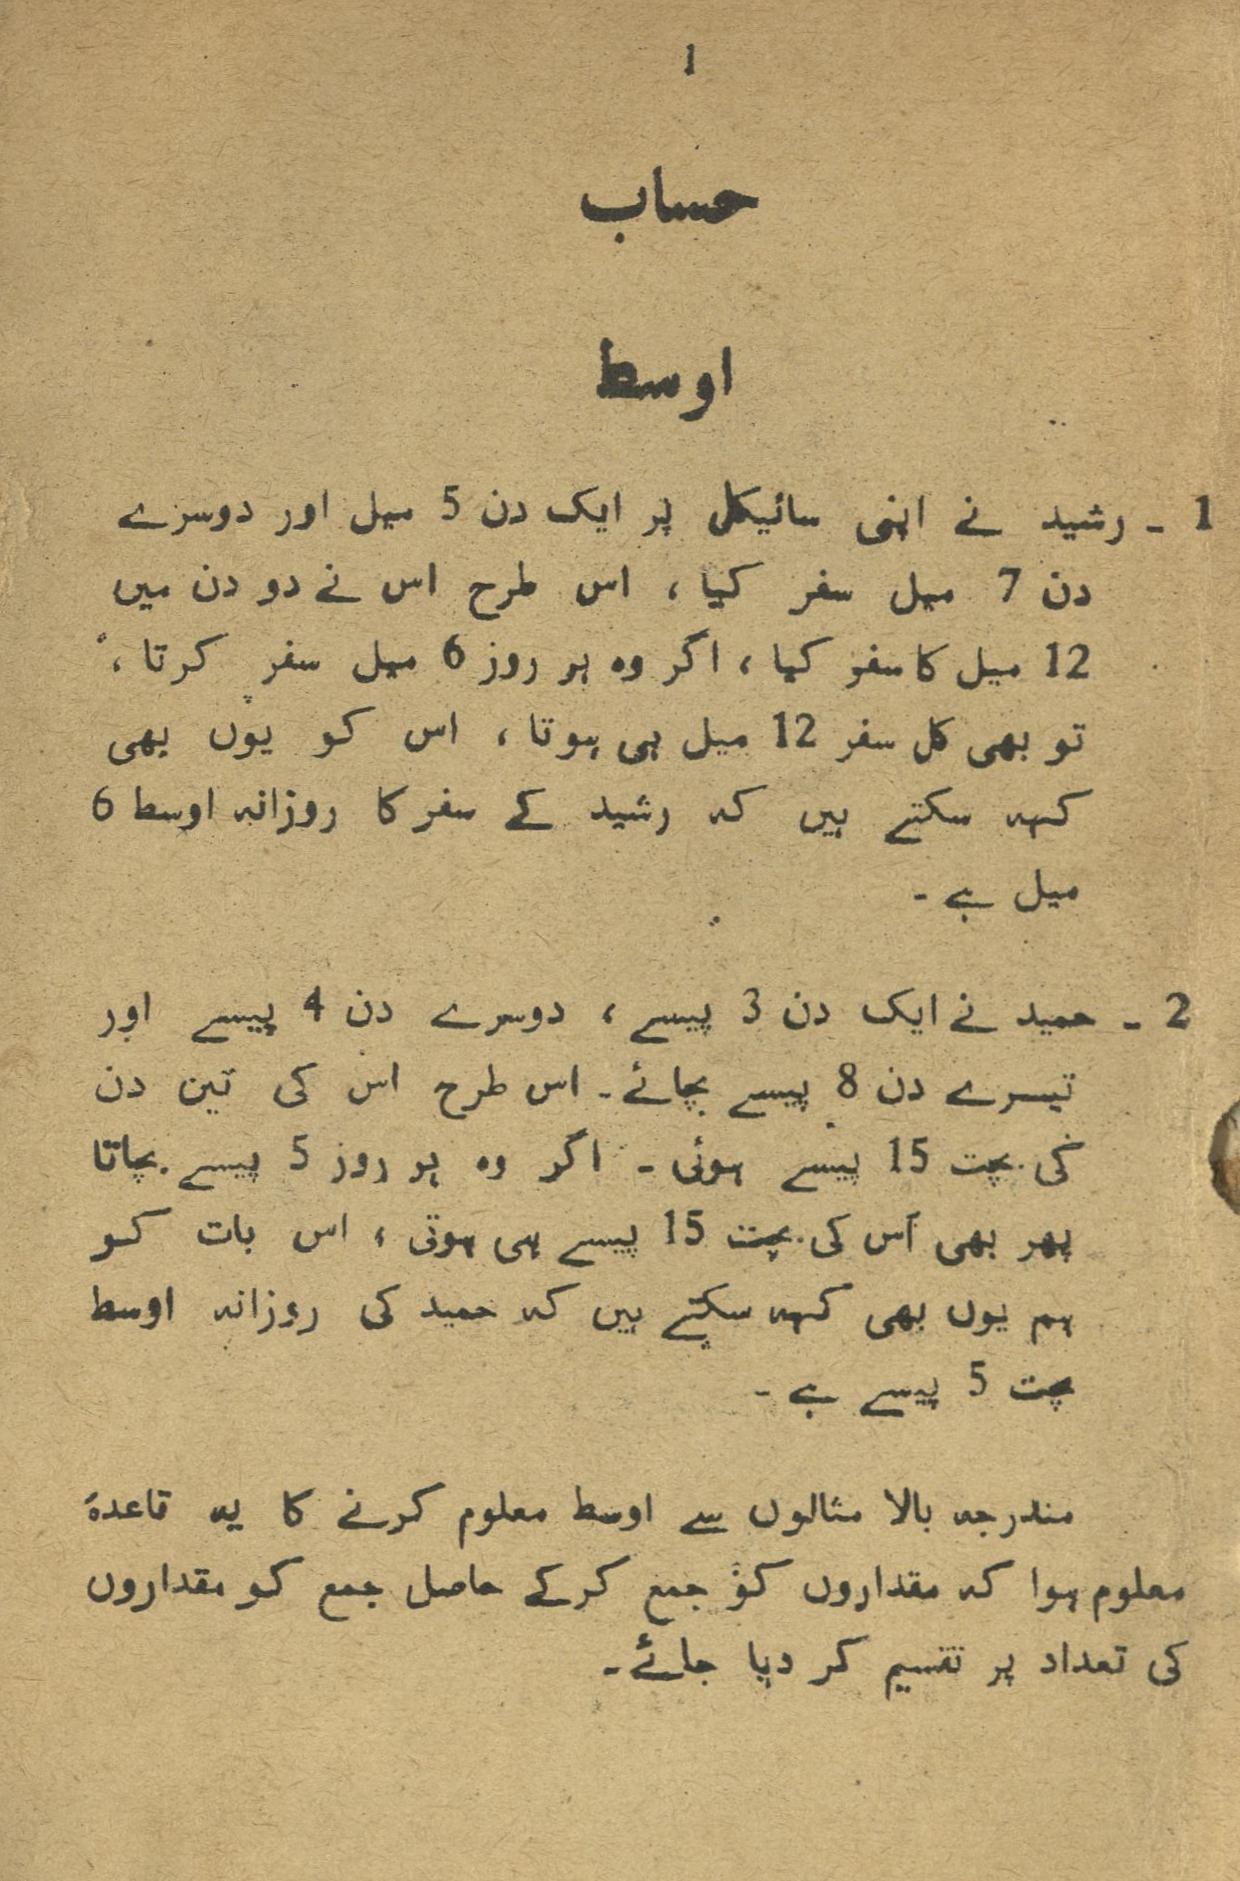 1
حساب
اوسط
1 ـ رشید نے اپنی سائیکل پر ایک دن 5 میل اور دوسرے
دن 7 میل سفر کیا ، اس طرح اس نے دو دن میں
12 میل کا سفر کیا ، اگر وہ ہر روز 6 میل سفر کرتا ،
تو بھی کل سفر 12 میل ہی ہوتا ، اس کو یوں بھی
کہہ سکتے ہیں کہ رشید کے سفر کا روزانہ اوسط 6
میل ہے ـ
2 ـ حمید نے ایک دن 3 پیسے ، دوسرے دن 4 پیسے اور
تیسرے دن 8 پیسے بچائے ـ اس طرح اس کی تین دن
کی بچت 15 پیسے ہوئی ـ اگر وہ ہر روز 5 پیسے بچاتا
پھر بھی اس کی بچت 15 پیسے ہی ہوتی ، اس بات کو
ہم یوں بھی کہہ سکتے ہیں کہ حمید کی روزانہ اوسط
بچت 5 پیسے ہے ـ
مندرجہ بالا مثالوں سے اوسط معلوم کرنے کا یہ قاعدہ
معلوم ہوا کہ مقداروں کو جمع کرکے حاصل جمع کو مقداروں
کی تعداد پر تقسیم کر دیا جائے ـ